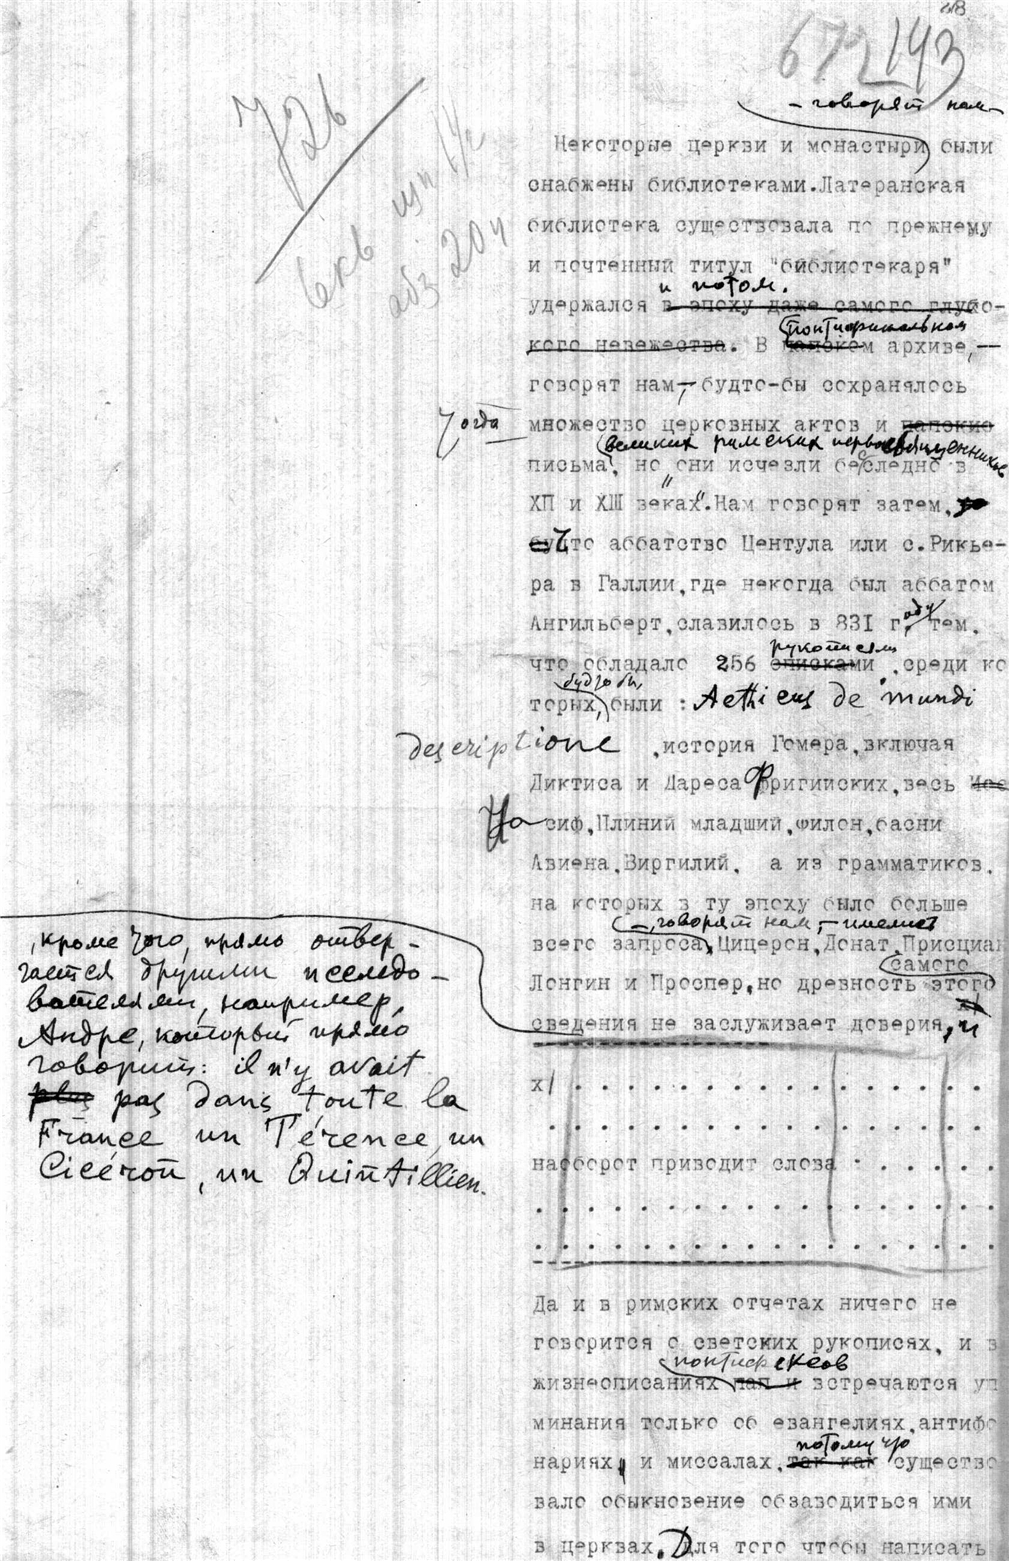 218
672 143
726
— говорят нам —
Некоторые церкви и монастыри были
снабжены библиотеками.Латеранская
библиотека существовала по прежнему
и почтенный титул "библиотекаря"
и потом.
удержался в эпоху даже самого глубо-
понтификальном
кого невежества. В папском архиве,—
говорят нам,— будто-бы сохранялось
тогда
множество церковных актов и папские
великих римских первосвященников
письма, но "они исчезли бесследно в
ХП и ХШ веках".Нам говорят затем,
будто аббатство Центула или с.Рикье-
ра в Галлии,где некогда был аббатом
Ангильберт,славилось в 831 г. тем,
рукописями
что обладало 256 списками ,среди ко
будто бы,
торых, были : Aethicus de mundi
descriptione ,история Гомера,включая
Диктиса и Дареса Фригийских,весь Иос
сиф,Плиний младший,Филон,басни
Авиена,Виргилий, а из грамматиков,
на которых в ту эпоху было больше
—, говорят нам, — имелись
всего запроса, Цицерон,Донат,Присциан
самого
Лонгин и Проспер,но древность этого
сведения не заслуживает доверия, и
,кроме того, прямо отвер-
гается другими исследо-
вателями, например,
Андре, который прямо
говорит: il n'y avait
plus pas dans toute la
France un Térence, un
Cicéron, un Quintillien.
х/ . . . . . . . . . . . . . . . .
. . . . . . . . . . . . . . . . .
наоборот приводит слова . . . . . .
. . . . . . . . . . . . . . . . .
. . . . . . . . . . . . . . . . .
Да и в римских отчетах ничего не
говорится о светских рукописях, и в
понтифексов
жизнеописаниях пап и встречаются уп
минания только об евангелиях,антифо
потому что
нариях, и миссалах,так как существо
вало обыкновение обзаводиться ими
в церквах. Для того чтобы написать